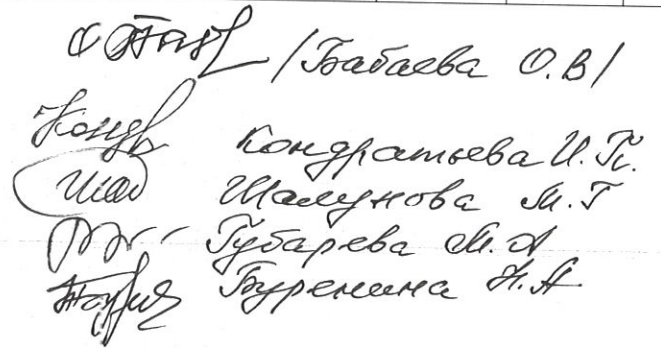 /Бабаева О.В/
Кондратьева И.Г.
Шалунова М.Г
Губарева М.А
Буренина Н.А